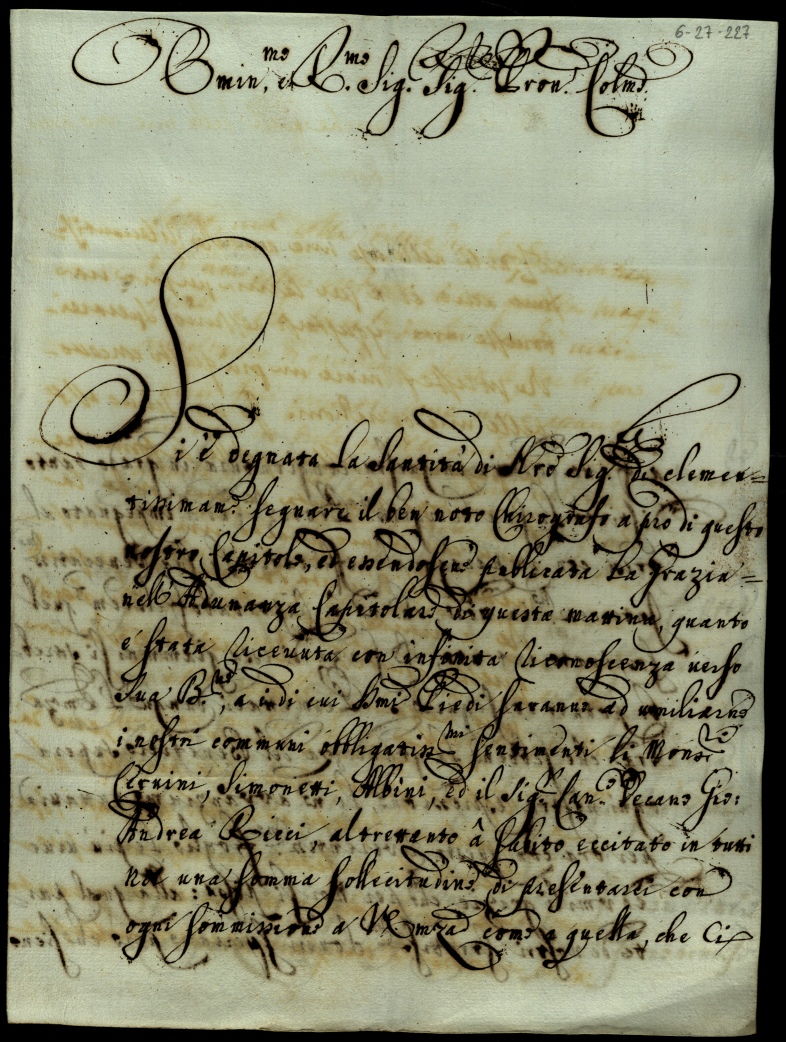 6-27-227
Emin.mo, e R.mo Sig.r Sig.r Pron.e Colmo
Si è degnata la Santità di Nro Sig.re di clemen=
tissimam.e segnare il ben noto Chirografo a prò di questo
nostro Capitolo, ed essendosene publicata la grazia =
nell'Adunanza Capitolare di questa mattina, quanto
è stata ricevuta con infinita riconoscenza verso
Sua B.ne, a i di cui Smi Piedi saranno ad umiliarne
i nostri communi obbligatiss.mi sentimenti li Mons.ri
Cervini, Simonetti, Albini, ed il Sig.r Can.co Decano Gio:
Andrea Ricci, altretanto à subito eccitato in tutti
Noi una somma sollecitudine di presentarci con
ogni sommissione a V. Emza come a quella, che Ci